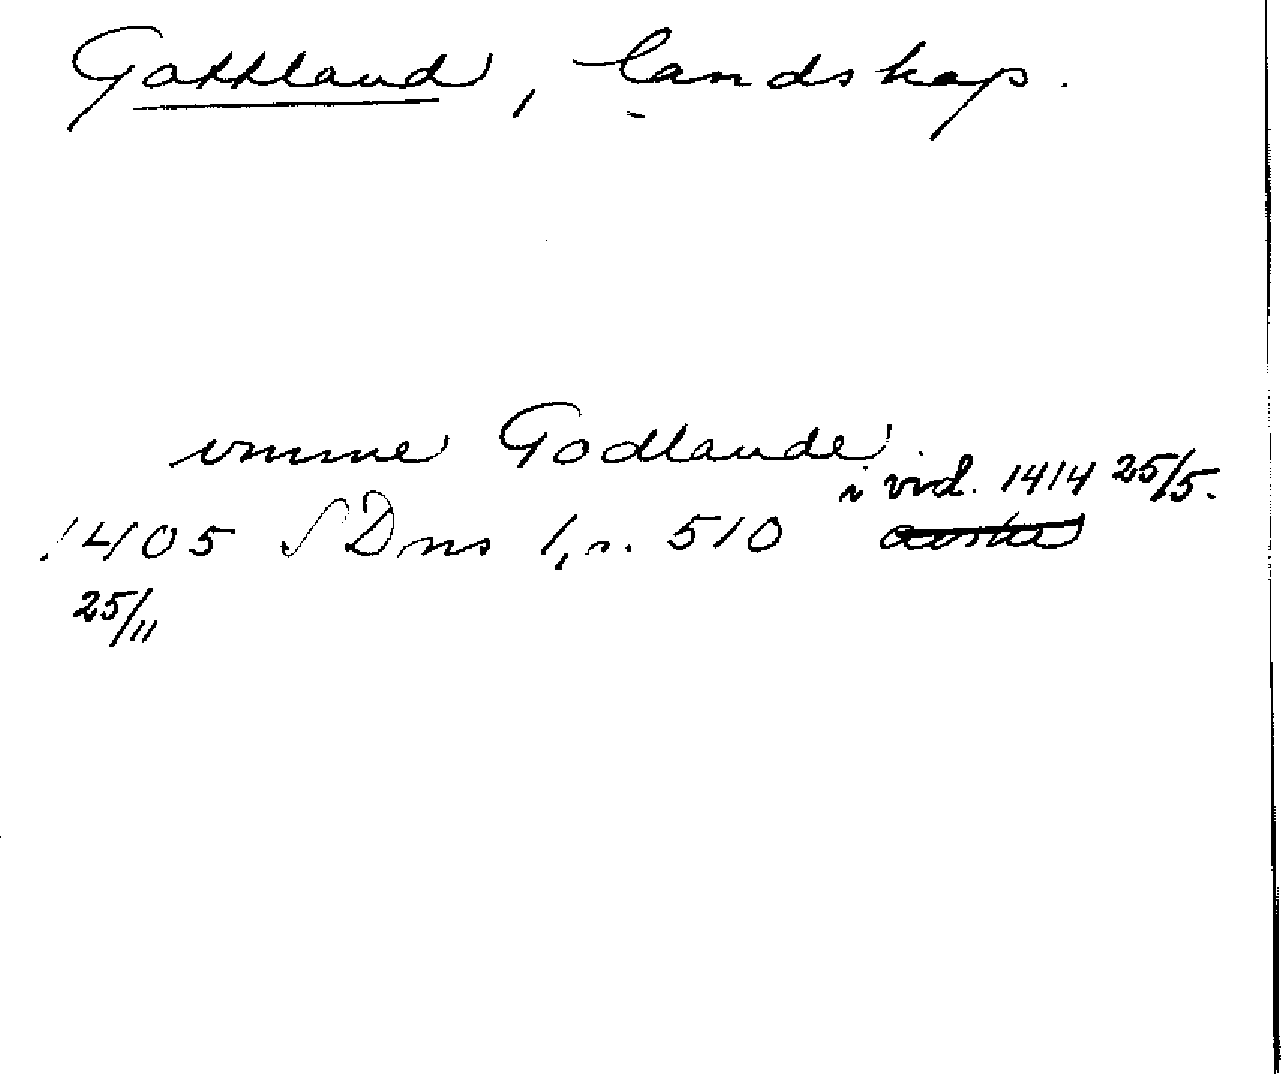 Gottland, landskap.
vmme Godlande
i vid. 1414 25/5.
1405 SDns 1, s. 510
25/11